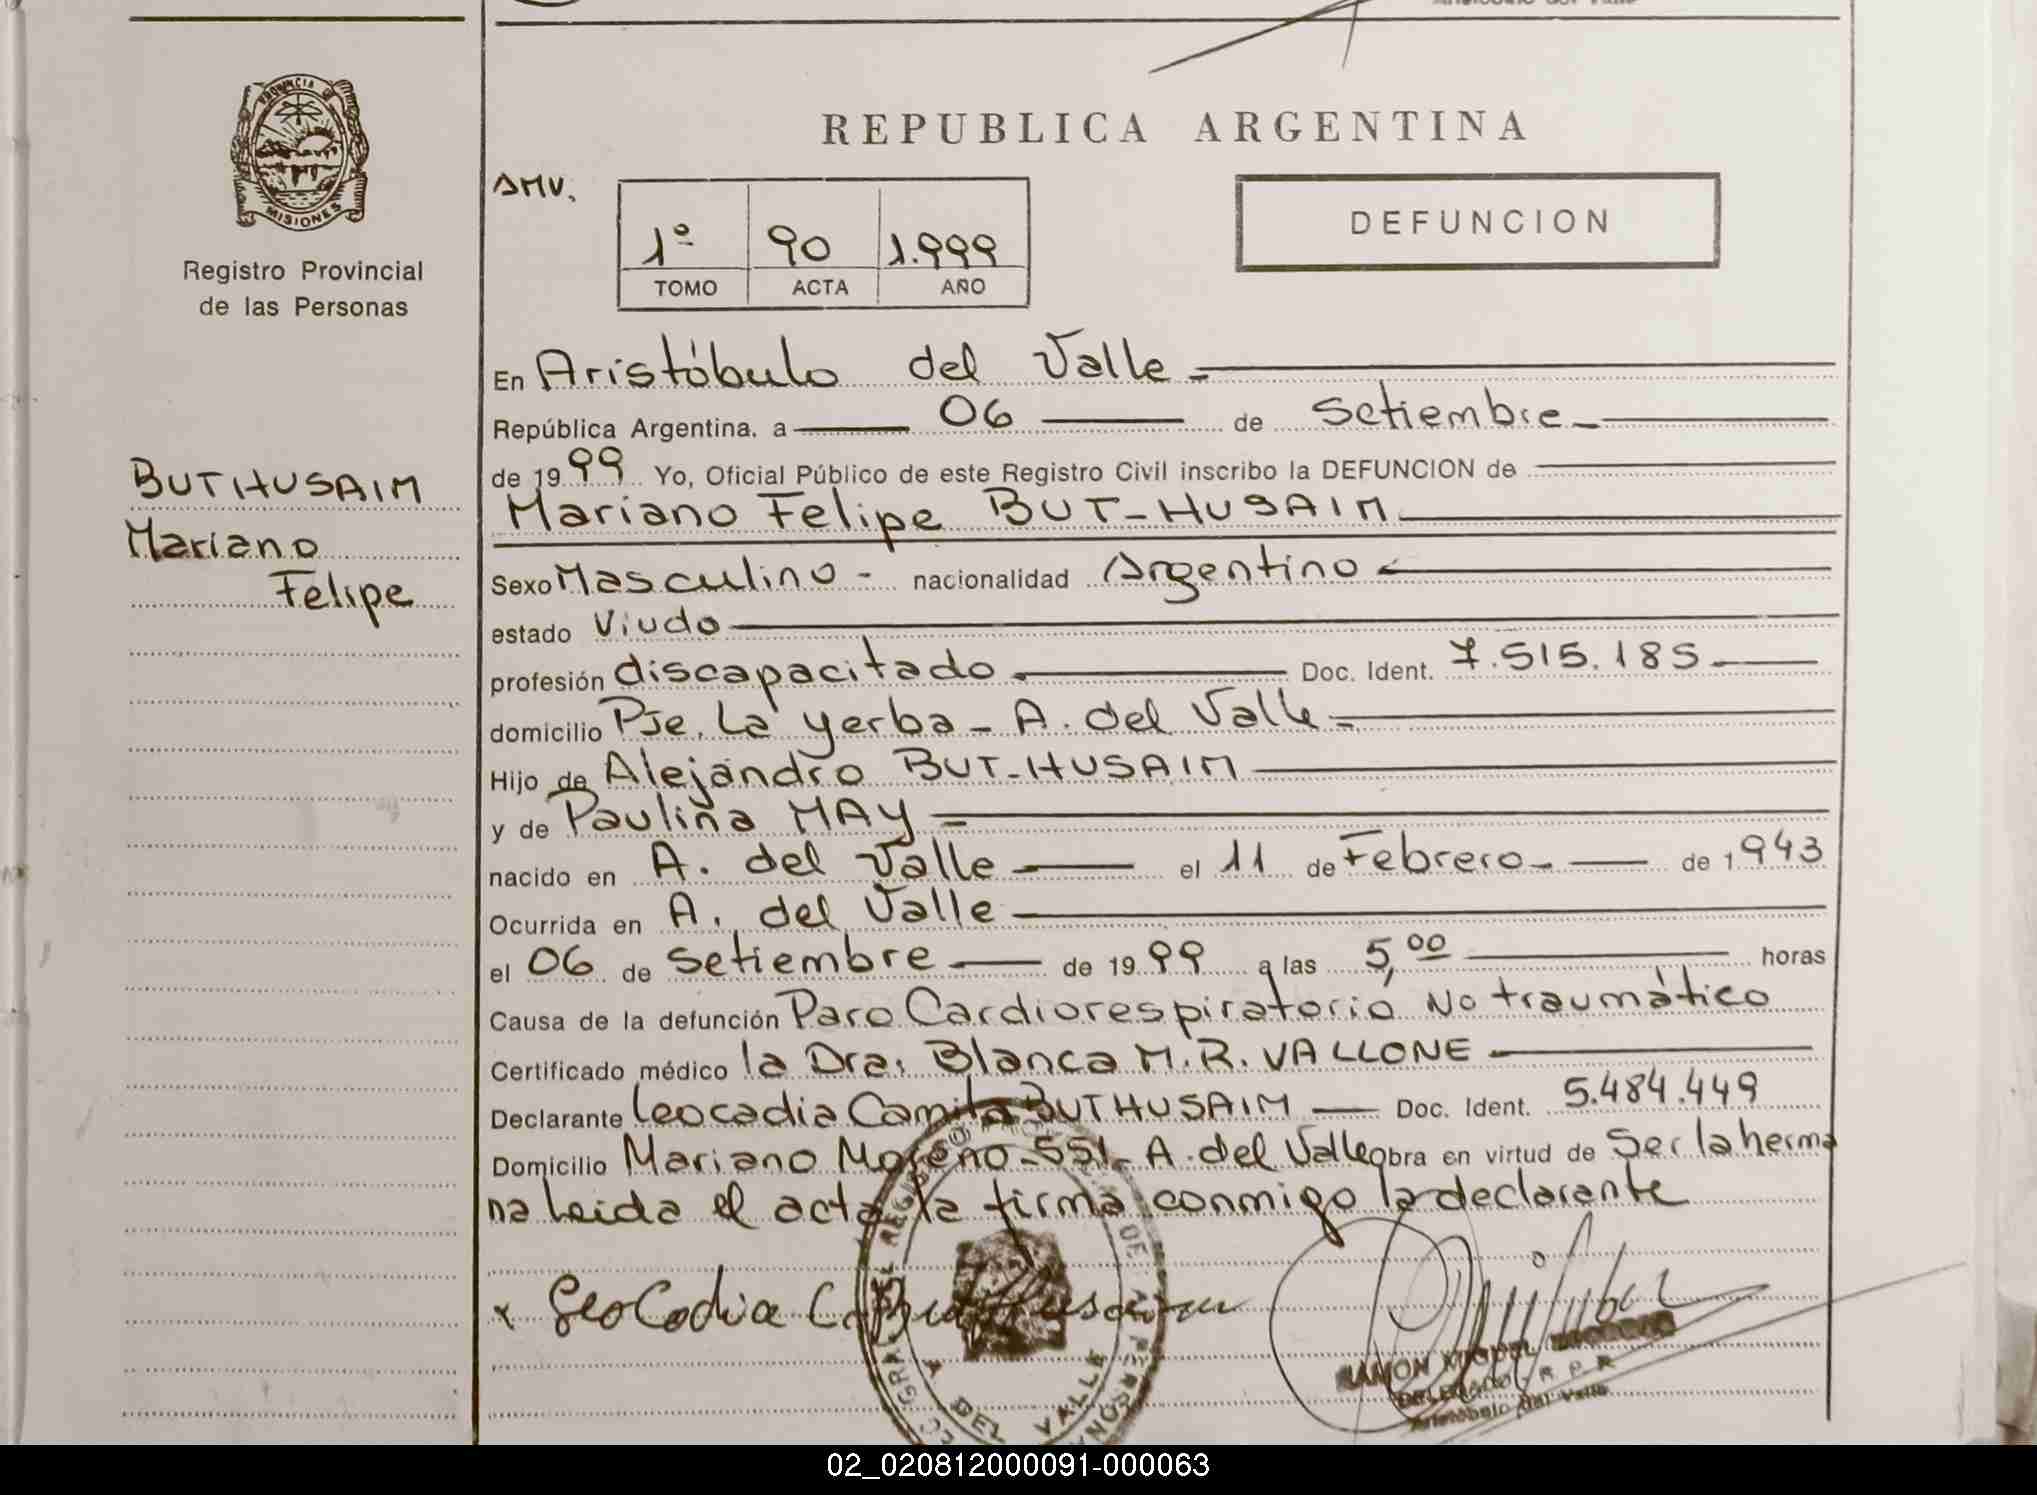 PROVINCIA DE
MISIONES
Registro Provincial
de las Personas
BUTHUSAIM
Mariano
Felipe
REPUBLICA ARGENTINA
AMV.
1º 90 1.999
TOMO ACTA AÑO
DEFUNCION
En Aristóbulo del Valle
República Argentina, a 06 de Setiembre
de 1999 Yo, Oficial Público de este Registro Civil inscribo la DEFUNCION de
Mariano Felipe BUT-HUSAIM
Sexo Masculino - nacionalidad Argentino
estado Viudo
profesión discapacitado Doc. Ident. 7.515.185
domicilio Pje. La yerba - A. del Valle
Hijo de Alejandro BUT-HUSAIM
y de Paulina MAY
nacido en A. del Valle el 11 de Febrero de 1943
Ocurrida en A. del Valle
el 06 de Setiembre de 1999 a las 5,00 horas
Causa de la defunción Paro Cardiorespiratorio No traumático
Certificado médico la Dra. Blanca M.R. VALLONE
Declarante Leocadia Camila BUTHUSAIM Doc. Ident. 5.484.449
Domicilio Mariano Moreno-551- A. del Valle obra en virtud de Ser la herma
na Leida el acta la firma conmigo la declarante
x Leocadia C.
RAMON MIGUEL
DELEGADO R.P.P.
Aristobulo del Valle
DEL VALLE
02_020812000091-000063